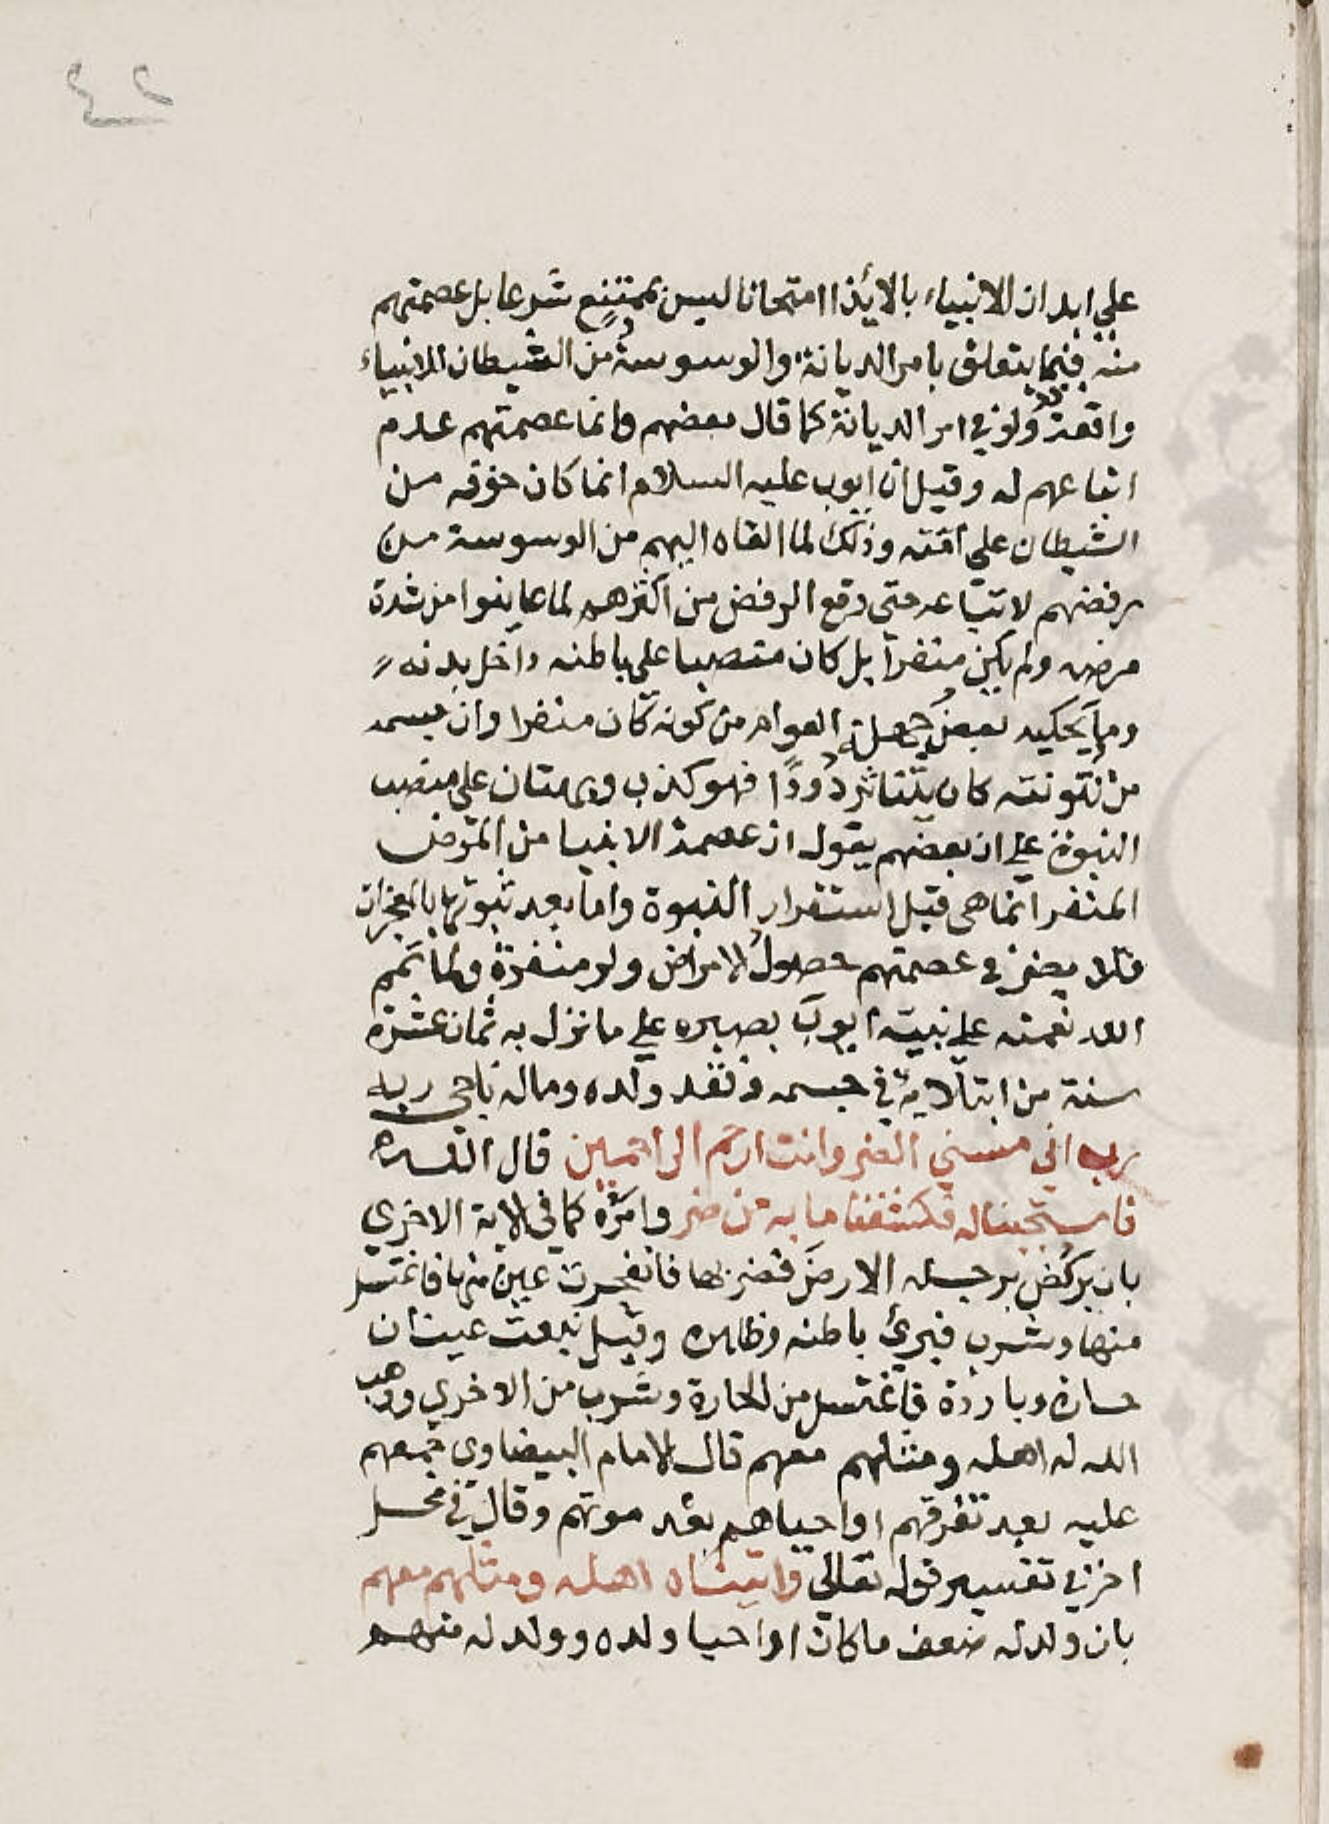 ٢٤
علي ابدان الانبياء بالايذا امتحانا ليس بممتنع شرعا بل عصمتهم
منه فيما يتعلق بامر الديانة والوسوسة من الشيطان للانبياء
واقعة ولو في امر الديانة كما قال بعضهم وانما عصمتهم عدم
اتباعهم له وقيل ان ايوب عليه السلام انما كان خوفه من
الشيطان علي امته وذلك لما القاه اليهم من الوسوسة من
رفضهم لاتباعه حتي وقع الرفض من اكثرهم لما عاينوا من شدة
مرضه ولم يكن منفرا بل كان منصبا علي باطنه داخل بدنه
وما يحكيه بعض جهلة العوام من كونه كان منفرا وان جسمه
من نتونته كان يتناثر دودا فهو كذب وبهتان علي منصب
النبوة علي ان بعضهم يقول ان عصمة الانبيا من المرض
المنفر انما هي قبل استقرار النبوة واما بعد ثبوتها بالمعجزات
فلا يضر في عصمتهم حصول الامراض ولو منفرة ولما تمم
الله نعمته علي نبيه ايوب بصبره علي ما نزل به ثمان عشرة
سنة من ابتلايه في جسمه وفقد ولده وماله ناجي ربه
رب اني مسني الضر وانت ارحم الراحمين قال الله
فاستجبنا له فكشفنا ما به من ضر وامره كما في الاية الاخري
بان يركض برجله الارض فضربها فانفجرت عين منها فاغتسل
منها وشرب فبرئ باطنه وظاهره وقيل نبعت عينان
حارة وباردة فاغتسل من الحارة وشرب من الاخري ووهب
الله له اهله ومثلهم معهم قال الامام البيضاوي جمعهم
عليه بعد تفرقهم او احياهم بعد موتهم وقال في محل
اخر في تفسير قوله تعالي واتيناه اهله ومثلهم معهم
بان ولد له ضعف ما كان او احيا ولده وولد له منهم